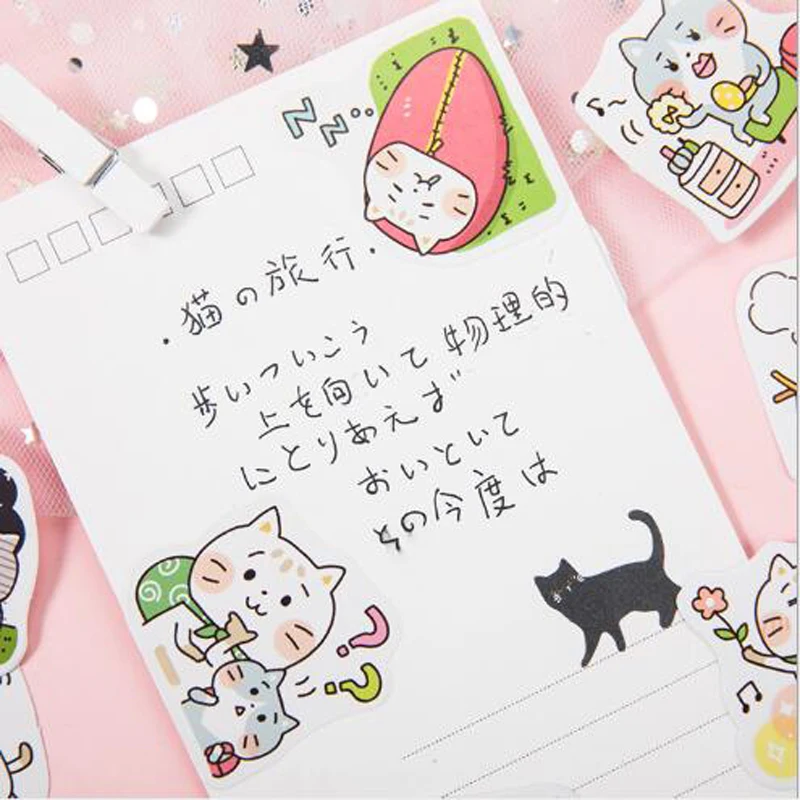 Zz
・猫の旅行・
歩いついこう
上を向いて物理的
にとりあえず
おいといて
その今度は
???